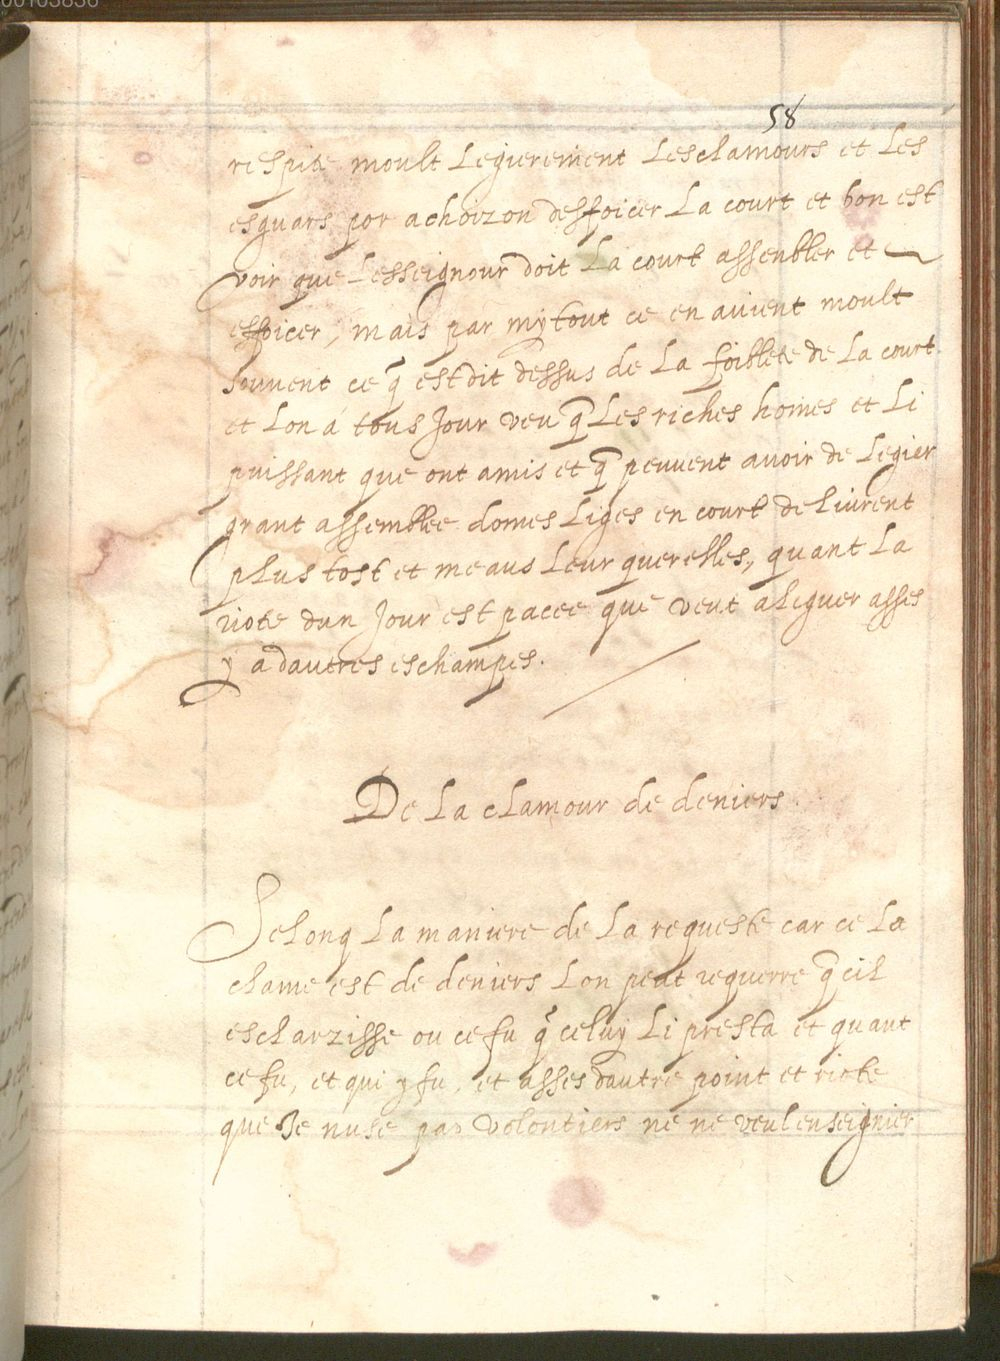 00103836
58
respite moult Legierement Lesclamours et Les
esguars por achoizon deffoicer La court et bon est
voir que Lesseignour doit La court assenbler et
effoicer, mais par mytout ce en auient moult
souuent ce q̃ est dit dessus de La foiblete de La court
et Lon á tous Jour veu q̃ Les riches homes et Li
puissant que ont amis et q̃ peuuent auoir de Legier
grant assemblee domes Liges en court deliurent
plus tost et meaus Leur querelles, quant La
riote dun Jour est pacee que veut aleguer asses
y a dautres eschampes.
De La clamour de deniers
Selonq La maniere de La requeste car ce La
clame est de deniers Lon peut requerre q̃ cil
esclarzisse ou ce fu q̃ celuy Li presta et quant
ce fu, et qui y fu, et asses dautre point et riote
que Je nuse pas volontiers ne ne veul enseignier